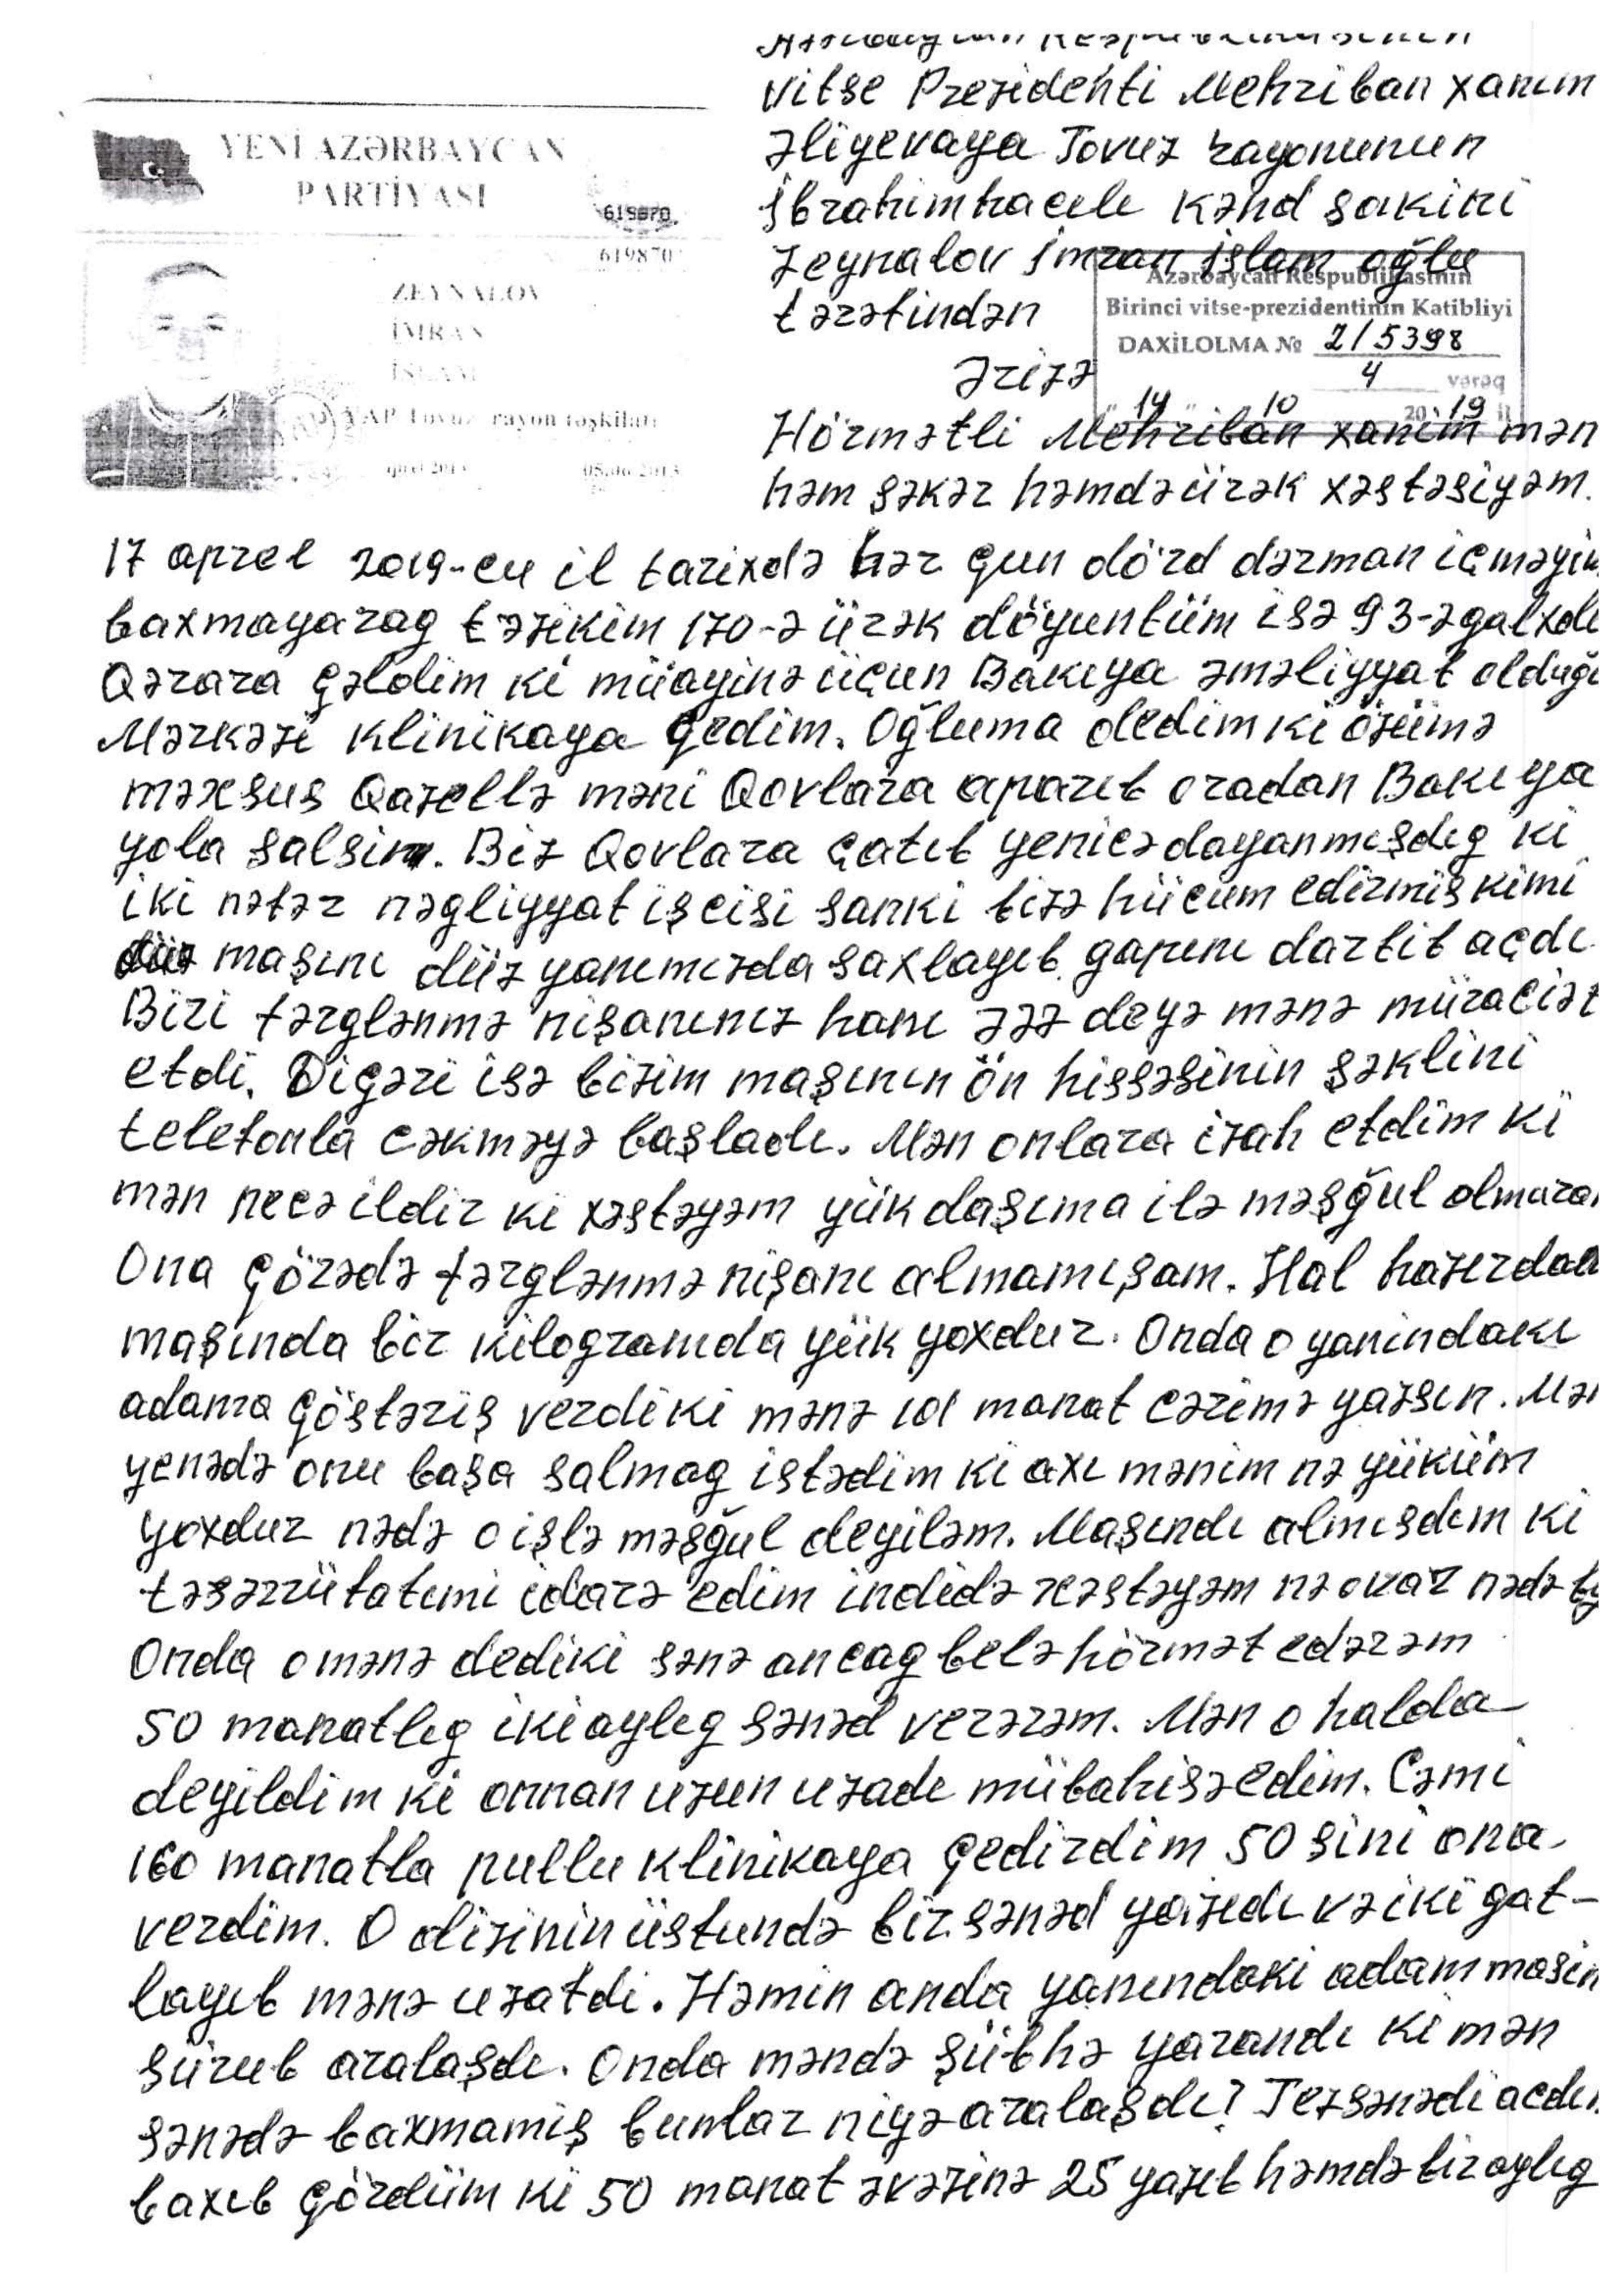 Azərbaycan Respublikasının
vitse Prezidenti Mehriban xanım
Əliyevaya Tovuz rayonunun
İbrahimhacılı kənd sakini
Zeynalov İmran İslam oğlu
tərəfindən
Ərizə
YENİ AZƏRBAYCAN
PARTİYASI
619870
619870
ZEYNALOV
İMRAN
İSLAM
YAP Tovuz rayon təşkilatı
05.06.2013
Azərbaycan Respublikasının
Birinci vitse-prezidentinin Katibliyi
DAXİLOLMA № 2/5398
4 vərəq
"14" 10 2019 il
Hörmətli Mehriban xanım mən
həm şəkər həmdə ürək xəstəsiyəm.
17 aprel 2019-cu il tarixdə hər gun dörd dərman içməyim
baxmayarag təzikim 170-ə ürək döyuntüm isə 93-ə galxdı
Qərara gəldim ki müayinə üçun Bakıya əməliyyat olduğu
Mərkəzi klinikaya gedim. Oğluma dedim ki özümə
məxsus Qazellə məni Qovlara aparıb oradan Bakıya
yola salsin. Biz Qovlara çatıb yenicə dayanmışdıg ki
iki nəfər nəgliyyat işcisi sanki bizə hücum edirmiş kimi
maşını düz yanımızda saxlayıb gapını dartib açdı.
Biri fərglənmə nişanınız hanı əəə deyə mənə müraciət
etdi. Digəri isə bizim maşının ön hissəsinin şəklini
telefonla cəkməyə başladı. Mən onlara izah etdim ki
mən necə ildir ki xəstəyəm yük daşıma ilə məşğul olmuram
Ona görədə fərglənmə nişanı almamışam. Hal hazırdaa
maşında bir kilogramda yük yoxdur. Onda o yanindakı
adama göstəriş verdiki mənə 101 manat cərimə yazsın. Mən
yenədə onu başa salmag istədim ki axı mənim nə yüküm
yoxdur nədə o işlə məşğul deyiləm. Maşındı almışdım ki
təsərrüfatımı idarə edim indidə xəstəyəm nə o var nədə
Onda o mənə dediki sənə ancag belə hörmət edərəm
50 manatlıg iki aylıg sənəd verərəm. Mən o halda
deyildim ki onnan uzun uzadı mübahisə edim. Cəmi
160 manatla pullu klinikaya gedirdim 50 sini ona
verdim. O dizinin üstundə bir sənəd yazdı və iki gat-
layıb mənə uzatdi. Həmin anda yanındaki adam maşin
sürub aralaşdı. Onda məndə şübhə yarandı ki mən
sənədə baxmamiş bunlar niyə aralaşdı? Tez sənədi acdım
baxıb gördüm ki 50 manat əvəzinə 25 yazıb həmdə bir aylıg